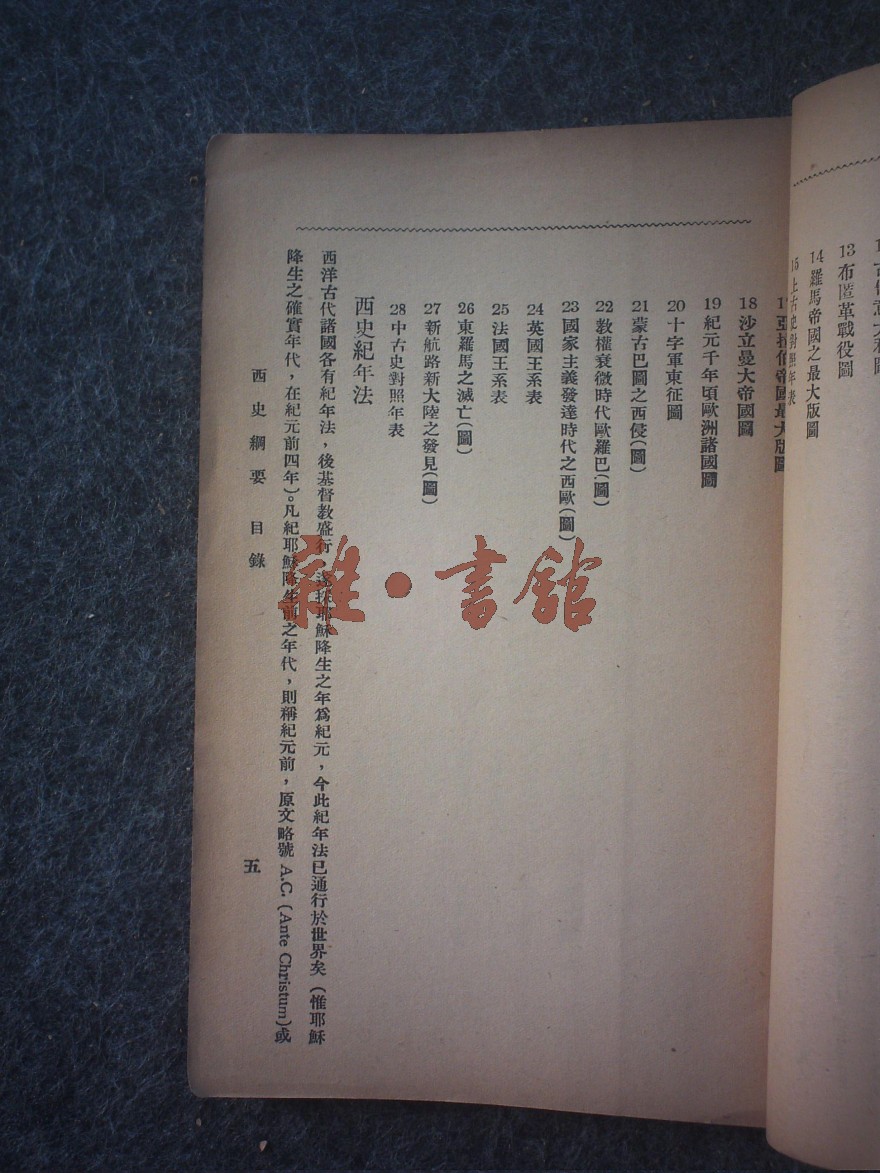 13 布匿革戰役圖
14 羅馬帝國之最大版圖
15 上古史對照年表
亞拉伯帝國最大版圖
18 沙立曼大帝國圖
19 紀元千年頃歐洲諸國圖
20 十字軍東征圖
21 蒙古巴圖之西侵(圖)
22 教權衰微時代歐羅巴(圖)
23 國家主義發達時代之西歐(圖)
24 英國王系表
25 法國王系表
26 東羅馬之滅亡(圖)
27 新航路新大陸之發見(圖)
28 中古史對照年表
西史紀年法
西洋古代諸國各有紀年法，後基督教盛行 耶穌降生之年爲紀元，今此紀年法已通行於世界矣(惟耶穌
降生之確實年代，在紀元前四年)。凡紀耶穌降生前之年代，則稱紀元前，原文略號 A.C. (Ante Christum)或
西史綱要 目錄
五
雜·書館